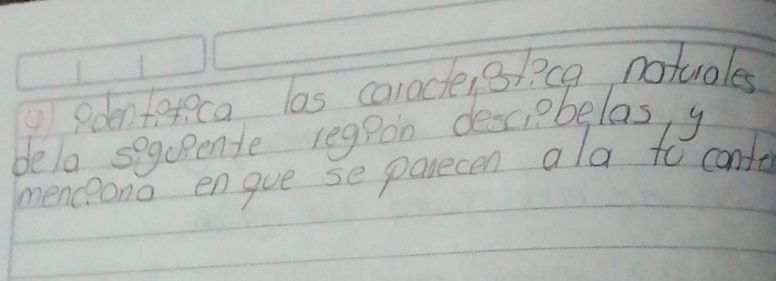 4) identifica las característica naturales
de la siguiente región descríbelas, y
menciona en que se parecen a la tu cante